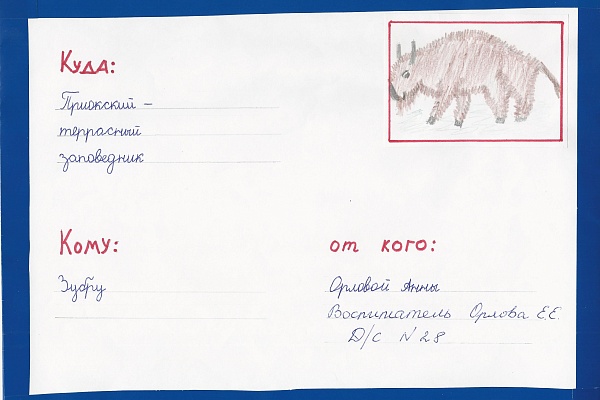 Куда:
Приокский –
террасный
заповедник
Кому:
Зубру
от кого:
Орловой Анны
Воспитатель Орлова Е.Е.
Д/С N 28